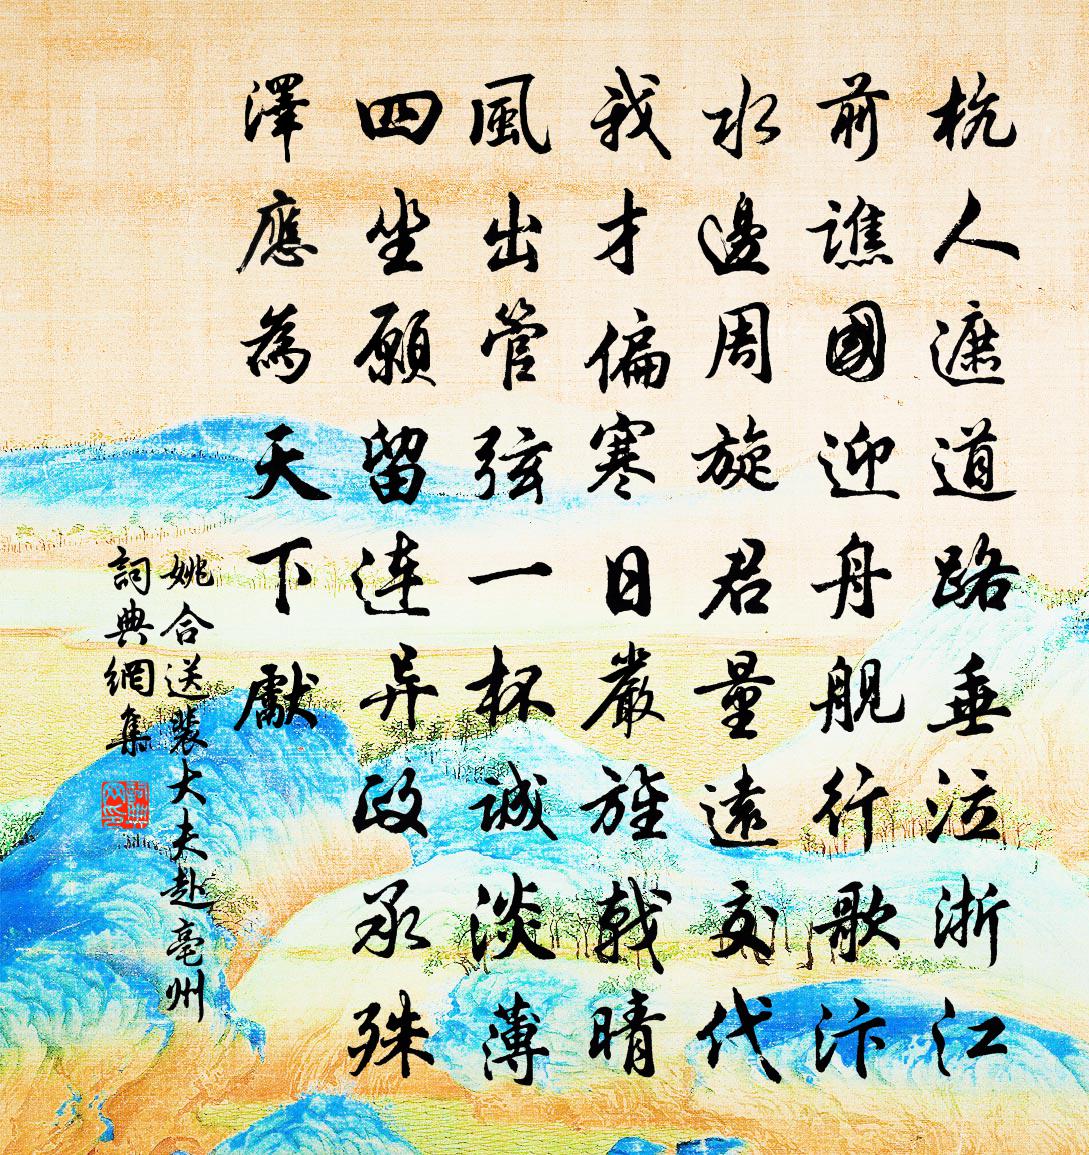 杭人遮道路垂泣浙江
前譙國迎舟舰行歌汴
水邊周旋君量遠交代
我才偏寒日嚴旌戟晴
風出管弦一杯誠淡薄
四坐願留连异政承殊
澤應為天下獻
姚合送裴大夫赴亳州
詞典網集